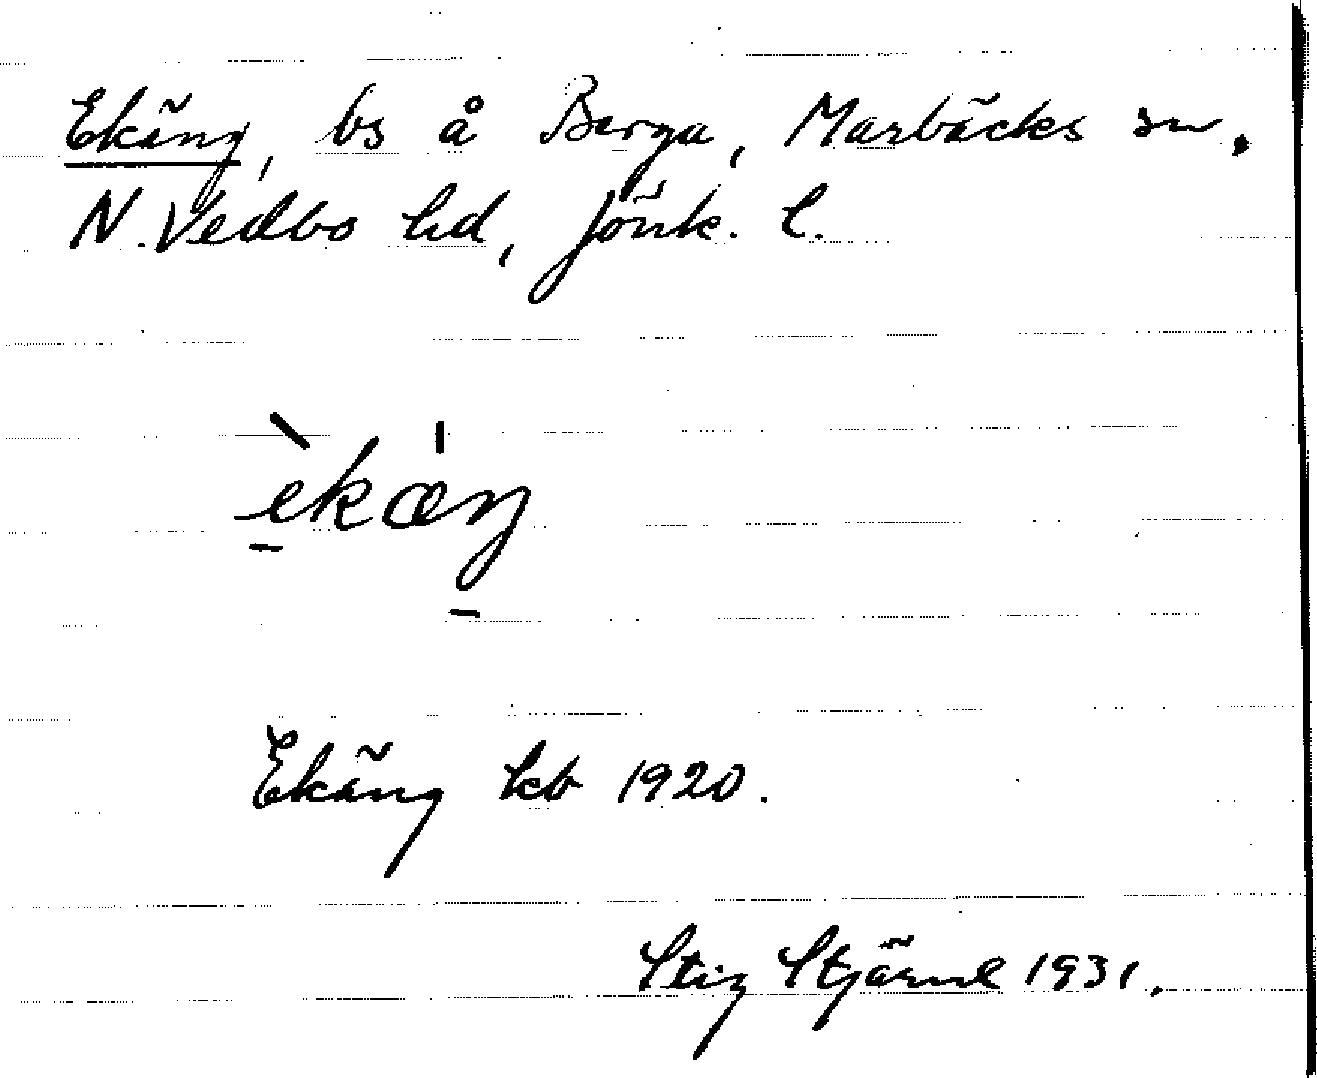 Ekäng, bs å Berga, Marbäcks sn.
N. Vedbo hd, Jönk. l.
èkǽŋ
Ekäng kb 1920.
Stig Stjärne 1931.